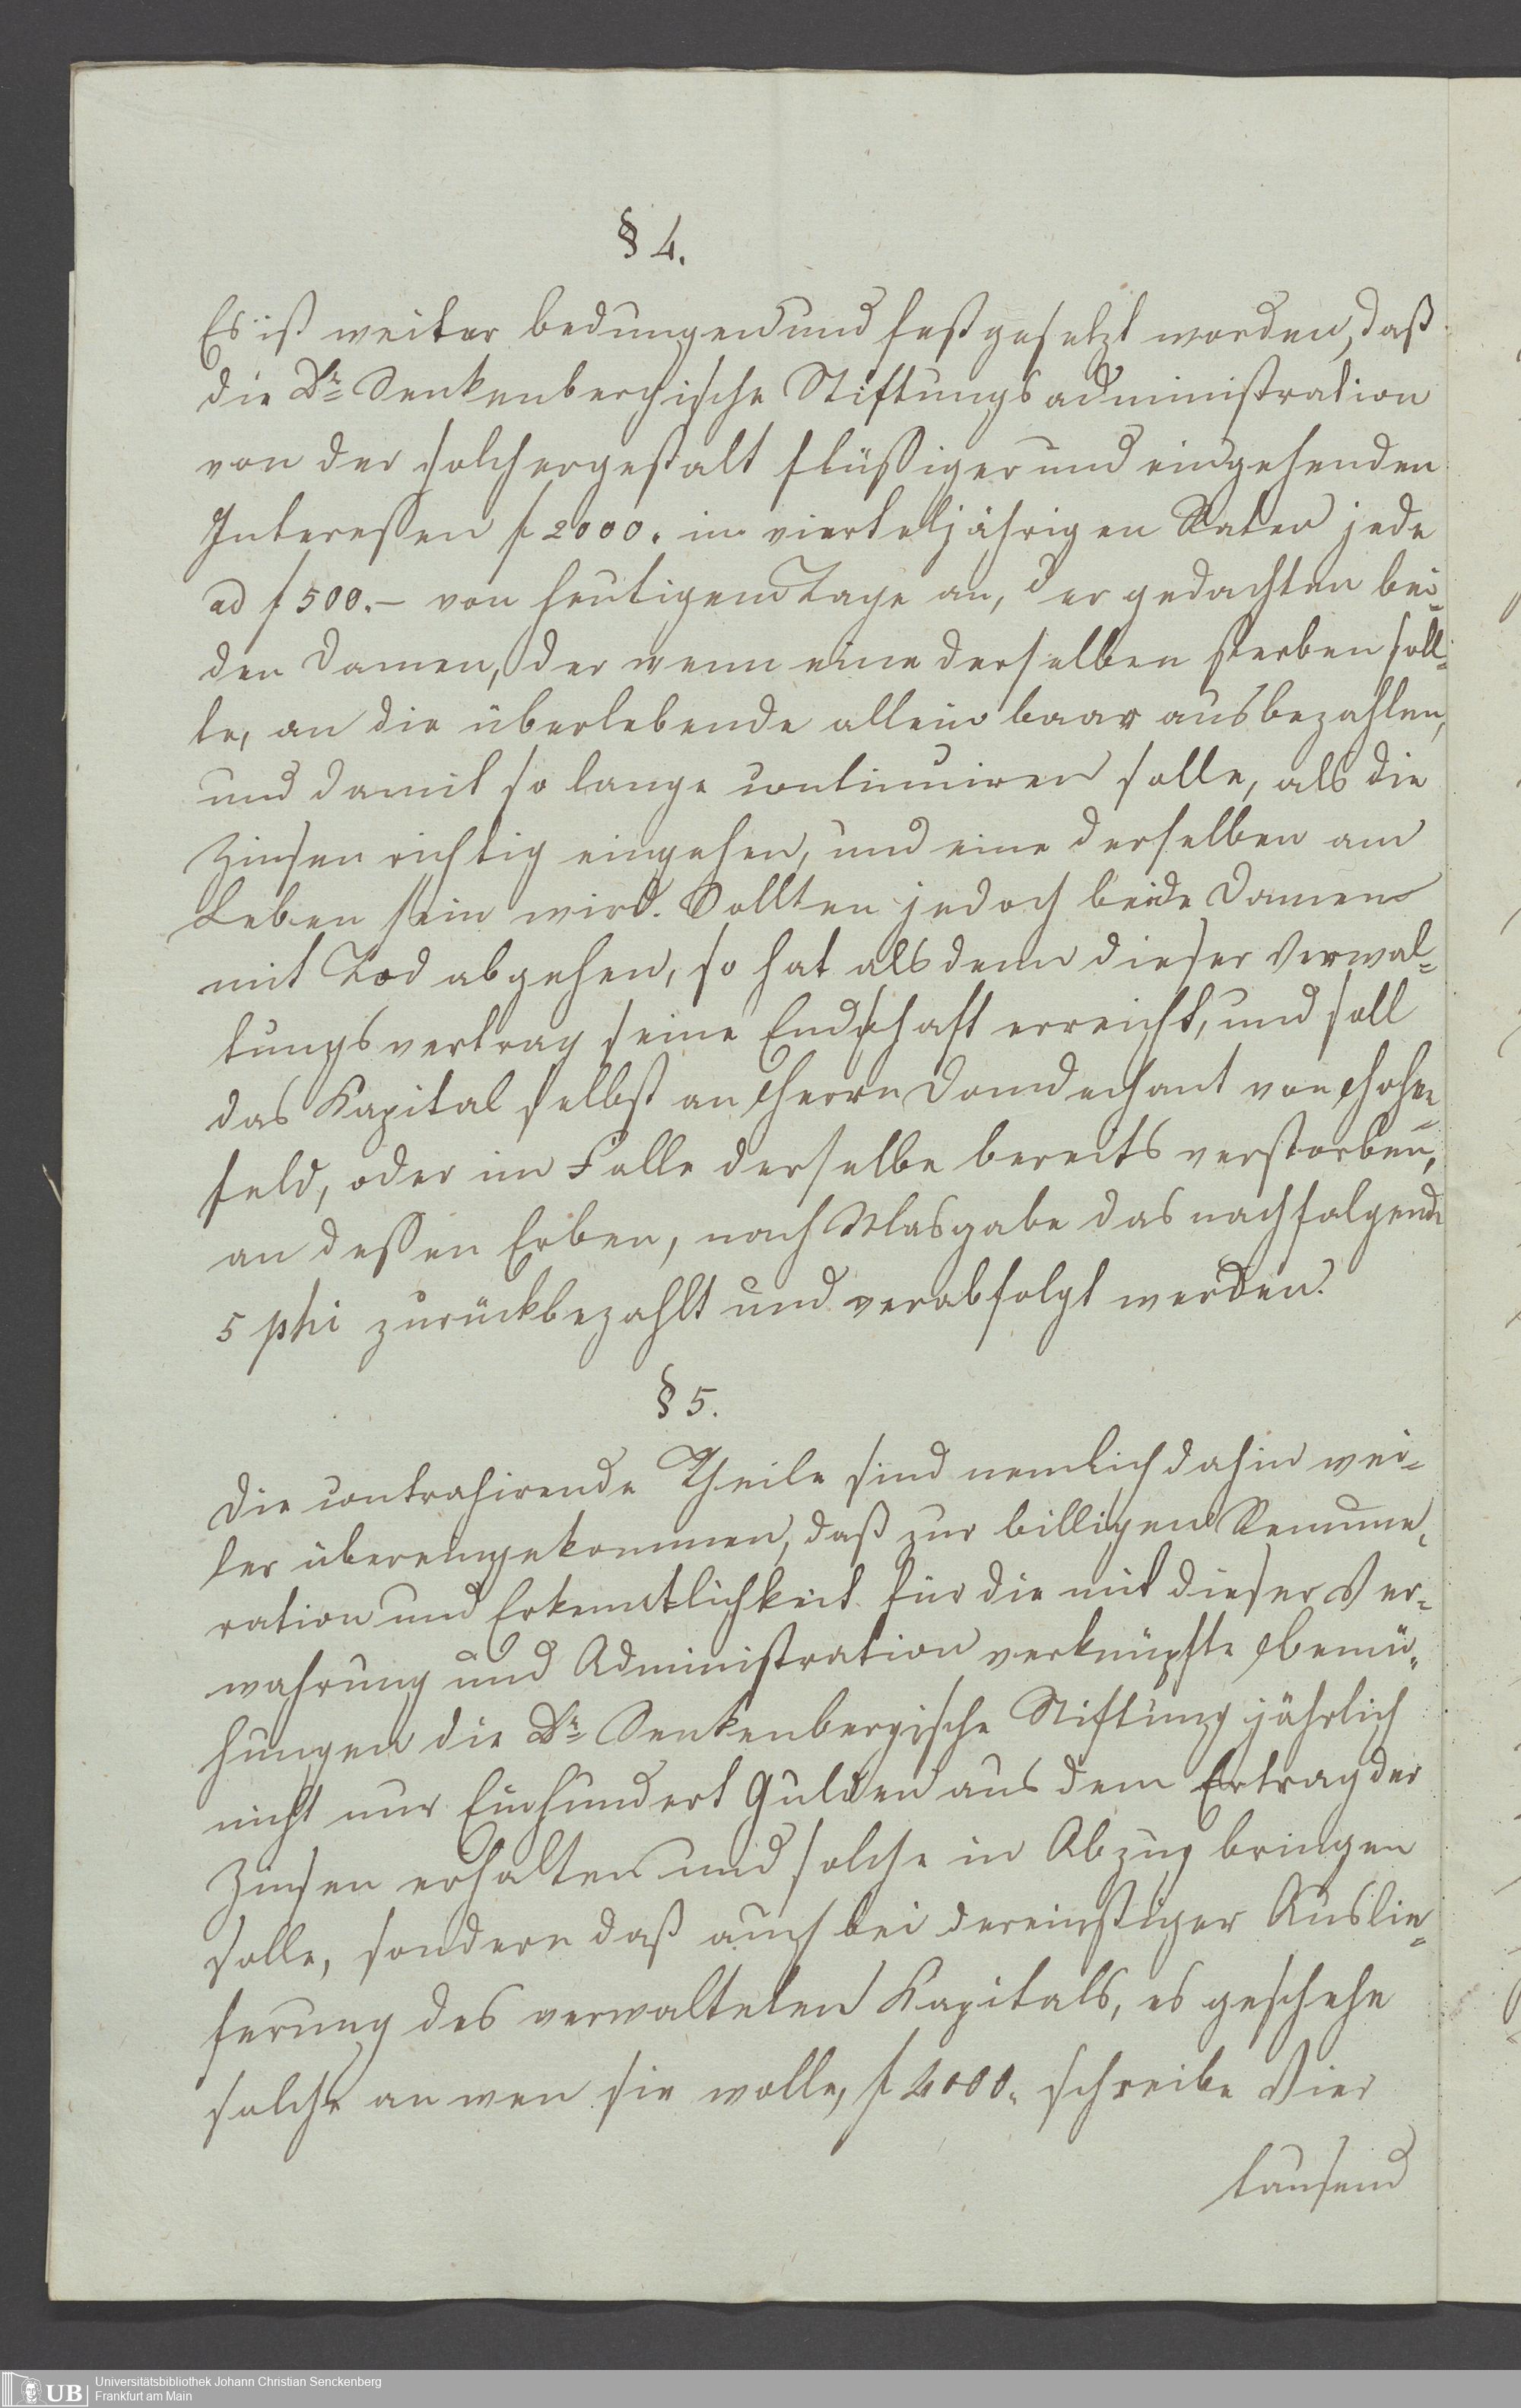 § 4.
Es ist weiter bedungen und festgesetzt worden, daß
die Dr. Senkenbergische Stiftungsadministration
von der solchergestalt flüßiger und eingehenden
Interessen f 2000. in vierteljährigen Raten jede
ad f 500.- von heutigem Tage an, der gedachten bei-
den Damen, oder wenn eine derselben sterben soll-
te, an die überlebende allein baar ausbezahlen,
und damit so lange continuiren solle, als die
Zinsen richtig eingehen, und eine derselben am
Leben sein wird. Sollten jedoch beide Damen
mit Tod abgehen, so hat alsdenn dieser Verwal-
tungsvertrag seine Endschaft erreicht, und soll
das Kapital selbst an Herrn Domdechant von Hohen-
feld, oder im Falle derselbe bereits verstorben,
an dessen Erben, nach Masgabe das nachfolgende
5 phi zurückbezahlt und verabfolgt werden.
§ 5.
Die contrahirende Theile sind nemlich dahin wei-
ter übereingekommen, daß zur billigen Remune-
ration und Erkenntlichkeit für die mit dieser Ver-
wahrung und Administration verknüpfte Bemü-
hungen die Dr. Senkenbergische Stiftung jährlich
nicht nur Einhundert Gulden aus dem Ertrag der
Zinsen erhalten und solche in Abzug bringen
solle, sondern daß auch bei dereinstiger Auslie-
ferung des verwalteten Kapitals, es geschehe
solche an wen sie wolle, f 4000. schreibe Vier
tausend
UB
Universitätsbibliothek Johann Christian Senckenberg
Frankfurt am Main